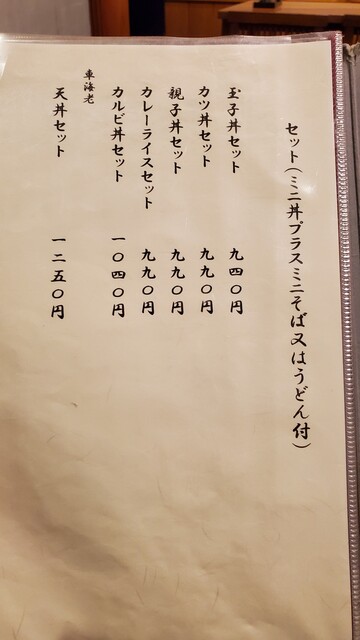 セット(ミニ丼プラスミニそば又はうどん付)
玉子丼セット 九四〇円
カツ丼セット 九九〇円
親子丼セット 九九〇円
カレーライスセット 九九〇円
カルビ丼セット 一〇四〇円
車海老
天丼セット 一二五〇円